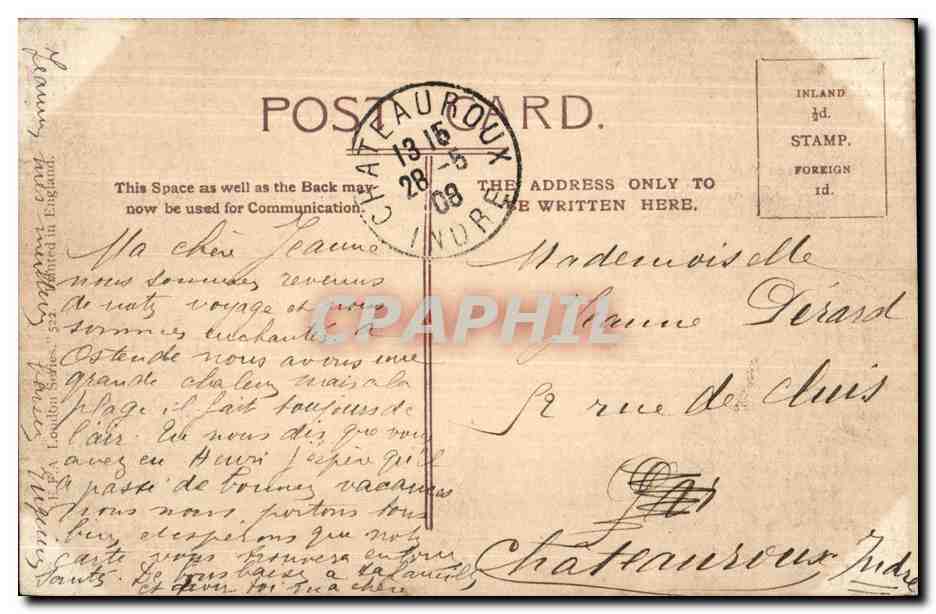 POST CARD.
CHATEAUROUX
13 15
28 -5
08
INDRE
INLAND
½d.
STAMP.
FOREIGN
1d.
This Space as well as the Back may
now be used for Communication.
THE ADDRESS ONLY TO
BE WRITTEN HERE.
Ma chère Jeanne
nous sommes revenus
de notr voyage et nous
sommes enchantés, à
Ostende nous avons une
grande chaleur mais a la
plage il fait toujours de
l'air. Tu nous dis que vous
avez eu Henri j'espère qu'il
a passé de bonnes vacances
nous nous portons tous
bien et espérons que notr
carte vous trouvera en bonne
Santé. De tous baise à ta famille
et toi ma chère
Jeanne
Mademoiselle
Jeanne Dérard
52 rue de Cluis
Châteauroux Indre
E.F.A. London Series." 522. Printed in England.
CPAPHIL